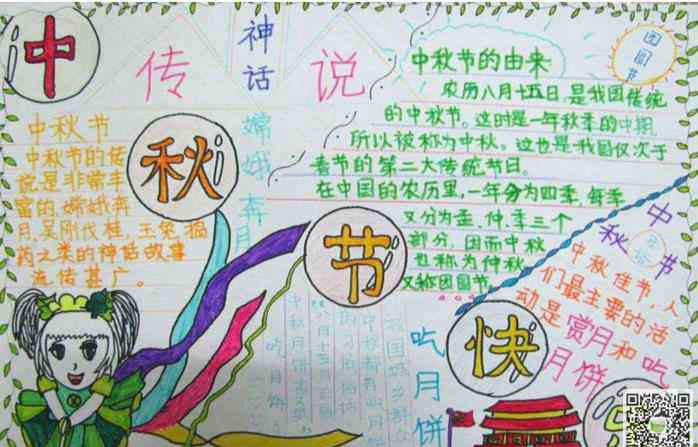 中
传
神话
说
中秋节的由来
农历八月十五日,是我国传统
的中秋节。这时是一年秋季的中期,
所以被称为中秋。这也是我国仅次于
春节的第二大传统节日。
在中国的农历里,一年分为四季,每季
又分为孟、仲、季三个
部分,因而中秋
也称为仲秋
又称团圆节。
团圆节
中秋节
中秋节的传
说是非常丰
富的,嫦娥奔
月,吴刚伐桂,玉兔捣
药之类的神话故事
流传甚广。
秋
嫦娥奔月
节
中秋节
中秋佳节,人
们最主要的活
动是赏月和吃
月饼
快
吃月饼
吃月饼